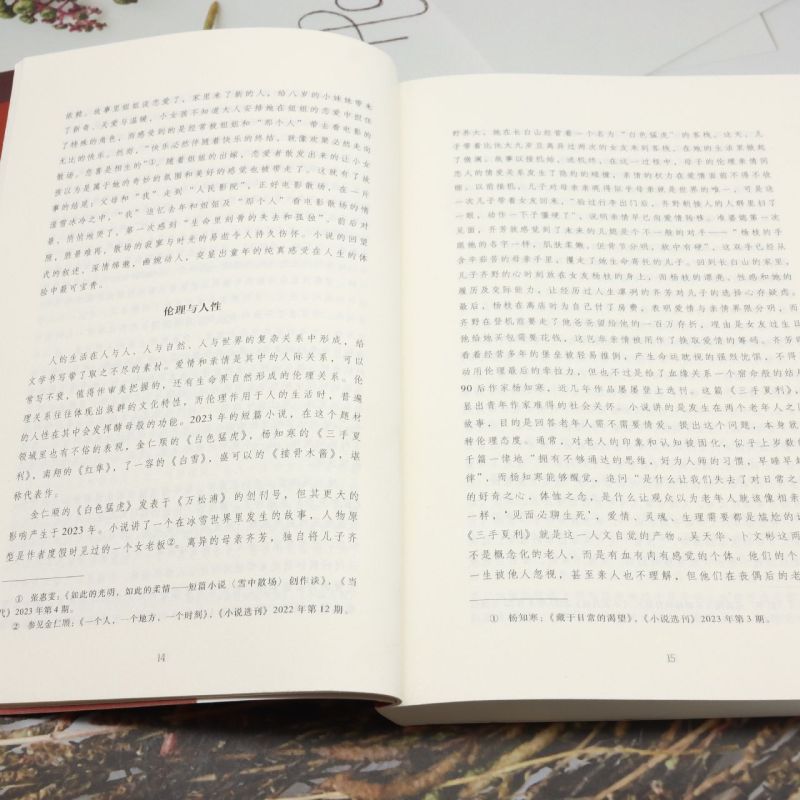 依赖。故事里姐姐谈恋爱了，家里来了新的人，给八岁的小妹妹带来
了新奇、关爱与温暖，小女孩不知道大人安排她在姐姐的恋爱中担任
了特殊的角色，而感受到的是经常被姐姐和“那个人”带去看电影的
无比的快乐。然而，“快乐必然伴随着快乐的终结，就像欢聚必然走向
散场。悲喜是相生的”①，随着姐姐的出嫁，恋爱者散发出来的让小女
孩以为是属于她的奇妙的氛围和美好的感觉也被带走了。这就有了故
事的结尾：父母和“我”走到“人民影院”，正好电影散场，在一片
湿雪冰冷之中，“我”追忆去年和姐姐及“那个人”看电影散场的情
景，悄悄地哭了，第一次感到“生命里刻骨的失去和孤独”，前后对
照，胜景难再，散场的寂寥与时光的易逝令人持久伤怀。小说的回望
体式的叙述，深情绵邈，曲婉动人，突显出童年的纯真感受在人生的体
验中最可宝贵。
伦理与人性
人的生活在人与人、人与自然、人与世界的复杂关系中形成，给
文学书写带了取之不尽的素材。爱情和亲情是其中的人际关系，可以
常写不衰，值得作审美把握的，还有生命界自然形成的伦理关系。伦
理关系往往体现出族群的文化特性，而伦理作用于人的生活时，普遍
的人性在其中会发挥酵母般的功能。2023 年的短篇小说，在这个题材
领域里也有不俗的表现，金仁顺的《白色猛虎》，杨知寒的《三手夏
利》，南翔的《红隼》，了一容的《白雪》，盛可以的《接骨木酱》，堪
称代表作。
金仁顺的《白色猛虎》发表于《万松浦》的创刊号，但其更大的
影响产生于 2023 年。小说讲了一个在冰雪世界里发生的故事，人物原
型是作者度假时见过的一个女老板②。离异的母亲齐芳，独自将儿子齐
① 张惠雯：《如此的光明，如此的柔情——短篇小说〈雪中散场〉创作谈》，《当
代》2023 年第 4 期。
② 参见金仁顺：《一个人，一个地方，一个时刻》，《小说选刊》2022 年第 12 期。
14
野养大，她在长白山经营着一个名为“白色猛虎”的客栈。这天，儿
子带着比他大几岁且离异过两次的女友来到客栈，在她的生活里掀起
了微澜。故事以接机始，送机终，在这一过程中，母子的伦理亲情同
恋人的情爱关系发生了隐约的碰撞，亲情的权力在爱情面前不得不收
敛。以前接机，儿子对母亲亲昵得似乎母亲就是世界的唯一，可是这
一次儿子带着女友回来，“验过行李出门后，齐野朝接人的人群里扫了
一眼，动作一下子僵硬了”，说明亲情早已向爱情转移。准婆媳第一次
见面，齐芳就感觉到了未来的儿媳是个不一般的对手——“杨枝的手
跟她的名字一样，肌肤柔嫩，但骨节分明，软中有硬”，这双手已经从
含辛茹苦的母亲手里，攫走了她生命寄托的儿子。回到长白山的家里，
儿子齐野的心时刻放在女友杨枝的身上，而杨枝的漂亮、性感和她的
履历及交际能力，让经历过人生凛冽的齐芳对儿子的选择心存疑虑。
最后，杨枝在离店时为自己付了房费，表明爱情与亲情界限分明，而
齐野在登机前要走了他爸爸留给他的一百万存折，理由是女友过生日
他给她买包需要花钱，这已年亲情被用作了换取爱情的筹码。齐芳的
看着经营多年的堡垒被轻易推倒，产生命运眈视的强烈恍惚，不得
动用伦理最后的牵拉力，但也不过是给了血缘关系一个宿命般的结局
90 后作家杨知寒，近几年作品屡屡登上选刊。这篇《三手夏利》，
显出青年作家难得的社会关怀。小说讲的是发生在两个老年人之间
故事，目的是回答老年人需不需要情爱。提出这个问题，本身就
种伦理态度。通常，对老人的印象和认知被固化，似乎上岁数
千篇一律地“拥有不够通达的思维，好为人师的习惯，早睡早
律”，而杨知寒能够醒觉，追问“是什么让我们失去了对日常之
的好奇之心，体恤之念，是什么让观众以为老年人就该像相亲
一样，‘见面必聊生死’，爱情、灵魂、生理需要都是尴尬的话
《三手夏利》就是这一人文自觉的产物。吴天华、卜文彬这两
不是概念化的老人，而是有血有肉有感觉的个体。他们的个
一生被他人忽视，甚至亲人也不理解，但他们在丧偶后的老
① 杨知寒：《藏于日常的渴望》，《小说选刊》2023 年第 3 期。
15